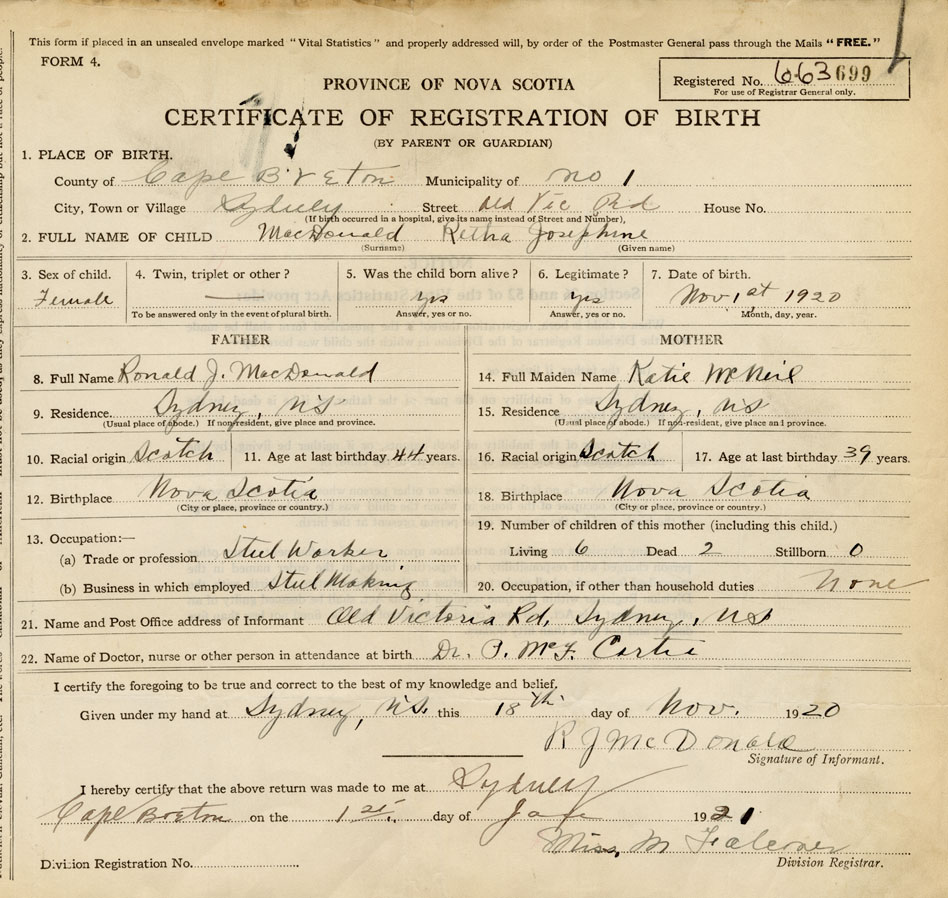 This form if placed in an unsealed envelope marked "Vital Statistics" and properly addressed will, by order of the Postmaster General pass through the Mails "FREE."
FORM 4.
Registered No. 663 699
For use of Registrar General only.
PROVINCE OF NOVA SCOTIA
CERTIFICATE OF REGISTRATION OF BIRTH
(BY PARENT OR GUARDIAN)
1. PLACE OF BIRTH.
County of Cape Breton Municipality of No 1
City, Town or Village Sydney Street Old Vic Rd House No.
(If birth occurred in a hospital, give its name instead of Street and Number),
2. FULL NAME OF CHILD MacDonald Retha Josephine
(Surname) (Given name)
3. Sex of child. 4. Twin, triplet or other? 5. Was the child born alive? 6. Legitimate? 7. Date of birth.
Female yes yes Nov 1st 1920
To be answered only in the event of plural birth. Answer, yes or no. Answer, yes or no. Month, day, year.
FATHER MOTHER
8. Full Name Ronald J. MacDonald 14. Full Maiden Name Katie McNeil
9. Residence. Sydney, NS 15. Residence Sydney, NS
(Usual place of abode.) If non-resident, give place and province. (Usual place of abode.) If non-resident, give place and province.
10. Racial origin Scotch 11. Age at last birthday 44 years. 16. Racial origin Scotch 17. Age at last birthday 39 years.
12. Birthplace Nova Scotia 18. Birthplace Nova Scotia
(City or place, province or country.) (City or place, province or country.)
13. Occupation:— 19. Number of children of this mother (including this child.)
(a) Trade or profession Steel Worker Living 6 Dead 2 Stillborn 0
(b) Business in which employed Steel Making 20. Occupation, if other than household duties None
21. Name and Post Office address of Informant Old Victoria Rd, Sydney, NS
22. Name of Doctor, nurse or other person in attendance at birth Dr. P. McF.
I certify the foregoing to be true and correct to the best of my knowledge and belief.
Given under my hand at Sydney, N.S. this 18th day of Nov. 1920
R J McDonald
Signature of Informant.
I hereby certify that the above return was made to me at Sydney
Cape Breton on the 1st. day of 1921
Miss. M Falconer
Division Registration No. Division Registrar.